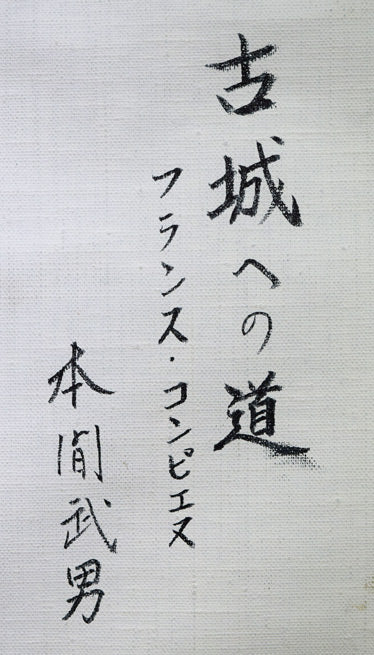 古城への道
フランス・コンピエヌ
本間武男